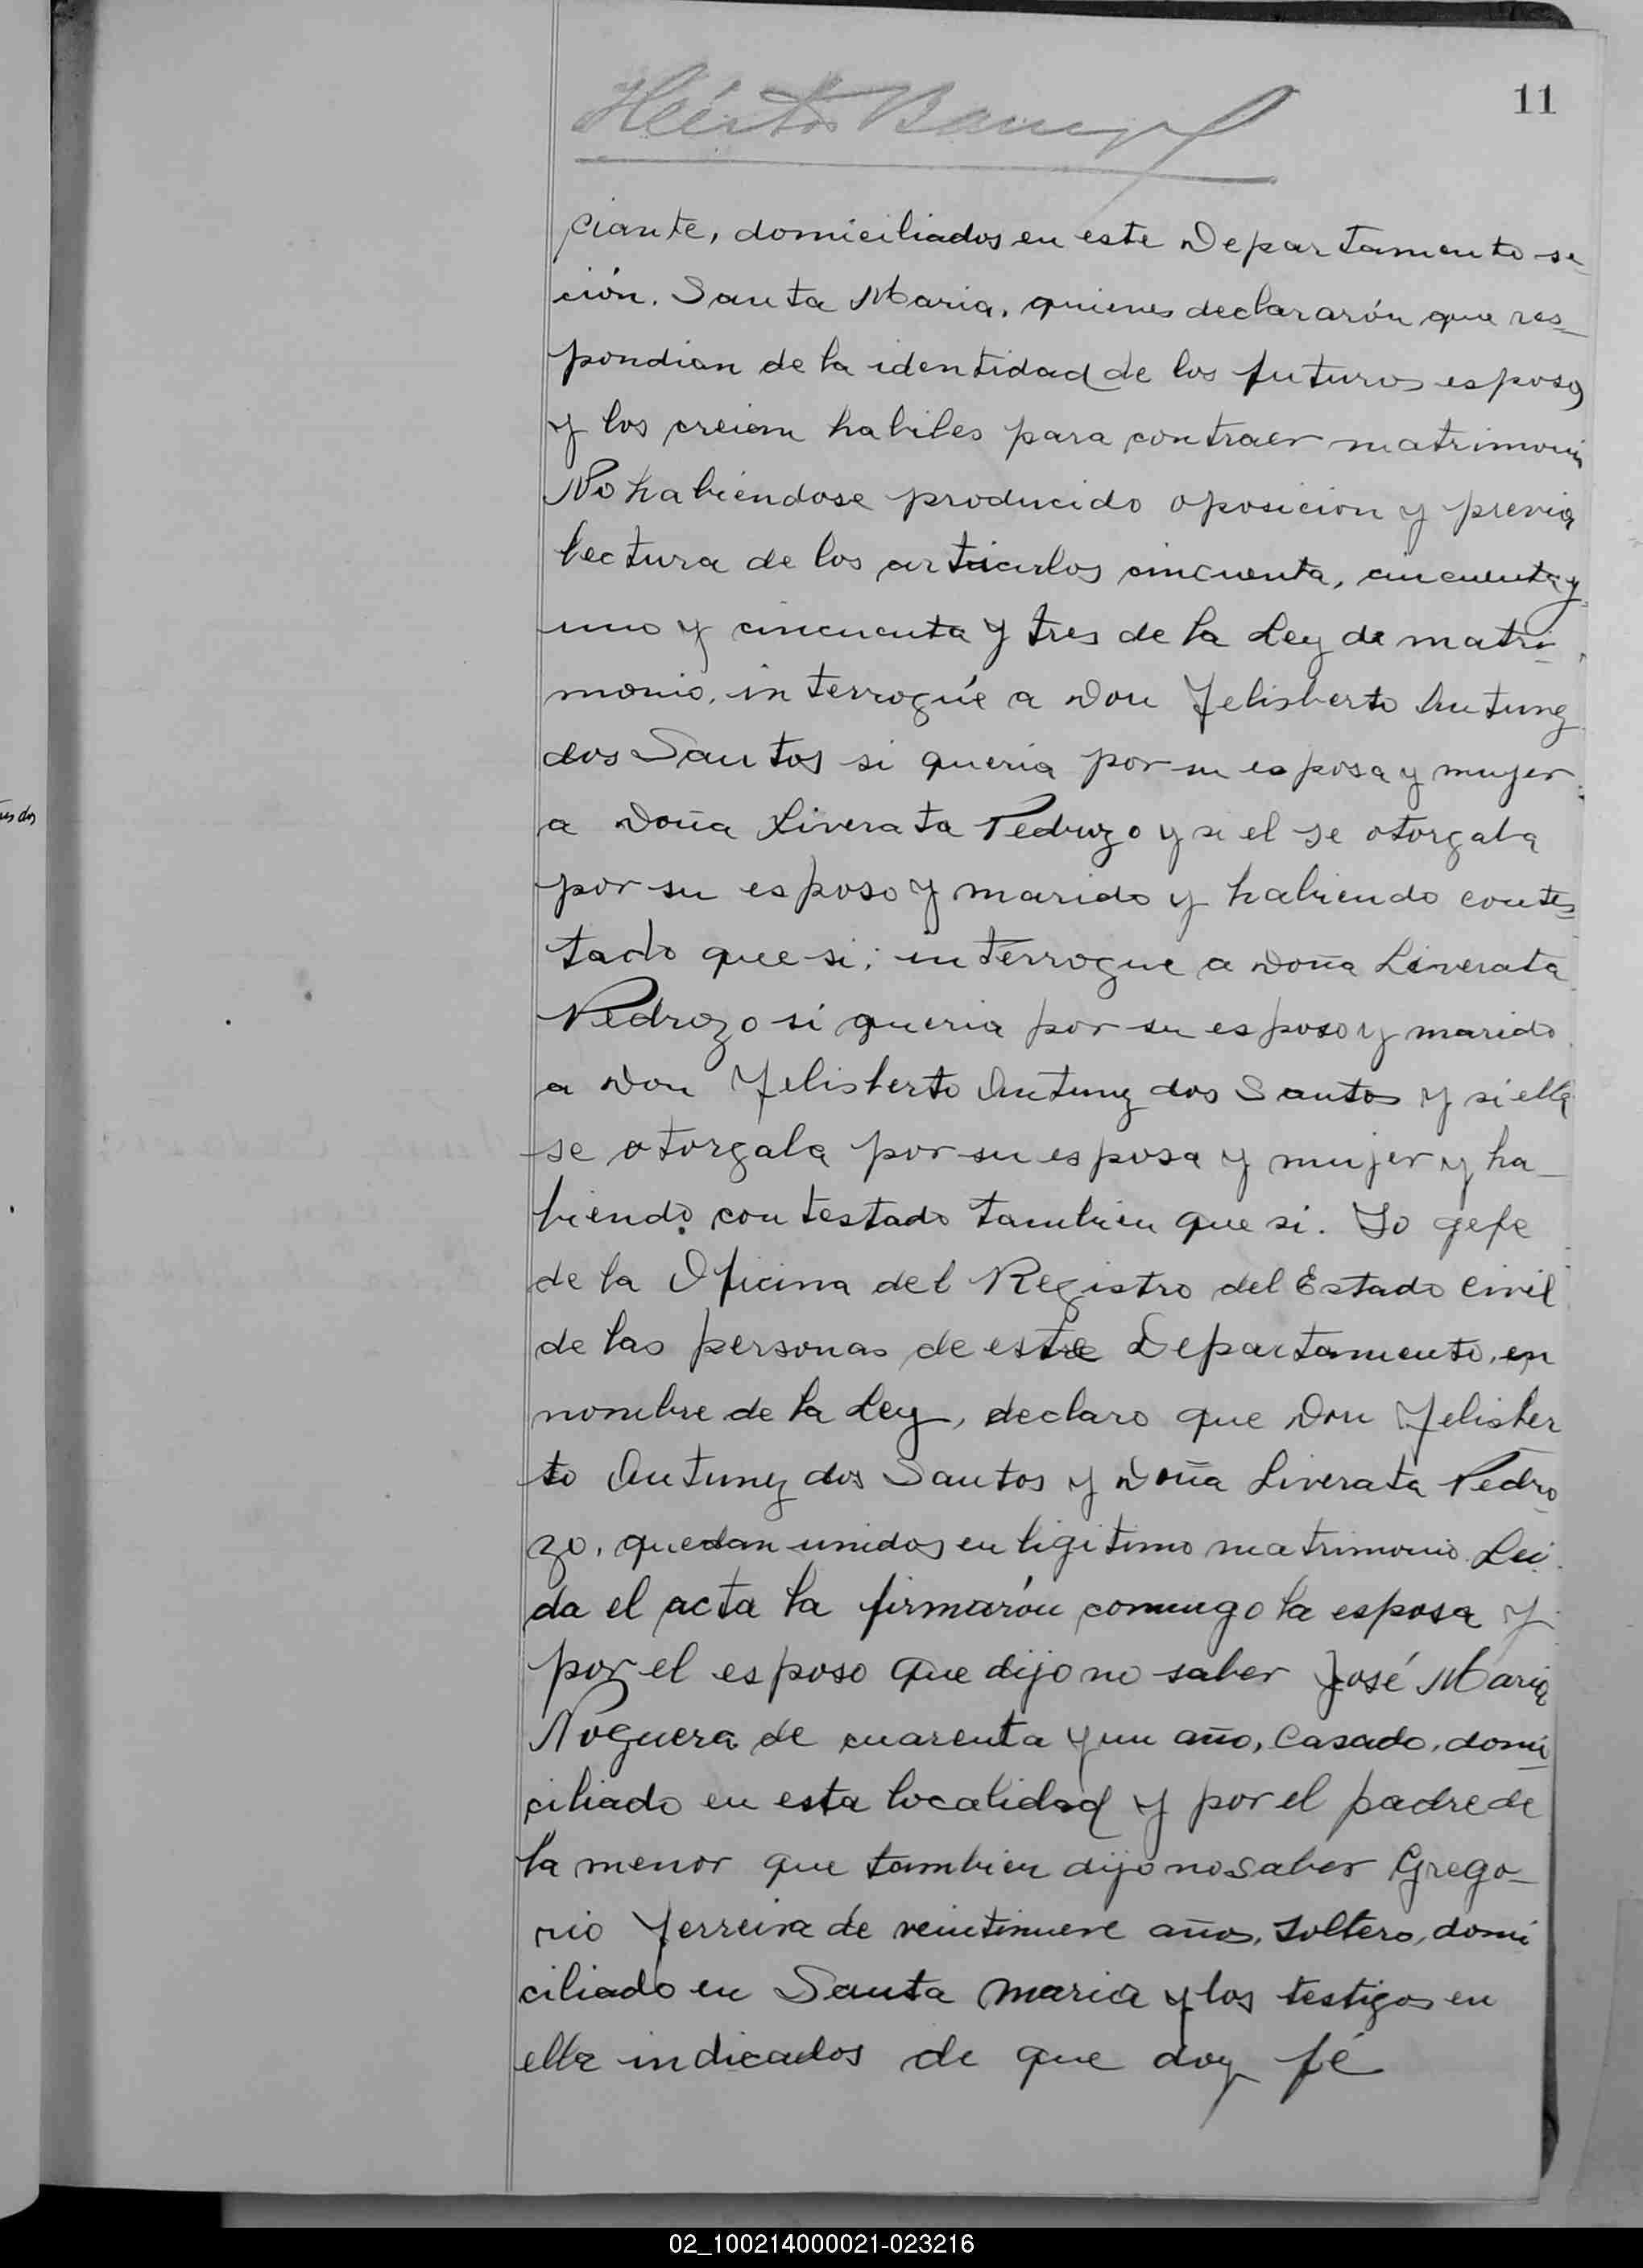 11
Héctor
ciante, domiciliados en este Departamento se-
ción. Santa Maria, quienes declararón que res-
pondian de la identidad de los futuros esposos
y los creian habiles para contraer matrimonio
No habiéndose producido oposicion y previa
lectura de los articulos cincuenta, cincuenta y
uno y cincuenta y tres de la Ley de matri-
monio, interrogúe a Don Felisberto Antunez
dos Santos si queria por su esposa y mujer
a Doña Liverata Pedrozo y si el se otorgaba
por su esposo y marido y habiendo contes-
tado que si; interrogue a Doña Liverata
Pedrozo si queria por su esposo y marido
a Don Felisberto Antunez dos Santos y si ella
se otorgaba por su esposa y mujer y ha-
biendo contestado tambien que si. Yo gefe
de la Oficina del Registro del Estado Civil
de las personas de este Departamento, en
nombre de la Ley, declaro que Don Felisber
to Antunez dos Santos y Doña Liverata Pedro-
zo, quedan unidos en ligitimo matrimonio. Lei-
da el acta la firmarón comigo la esposa y
por el esposo que dijo no saber José Maria
Noguera de cuarenta y un año, Casado, domi-
ciliado en esta localidad y por el padre de
la menor que tambien dijo no saber Grego-
rio Ferreira de veintinueve años, soltero, domi
ciliado en Santa Maria y los testigos en
ella indicados de que doy fé
02_100214000021-023216